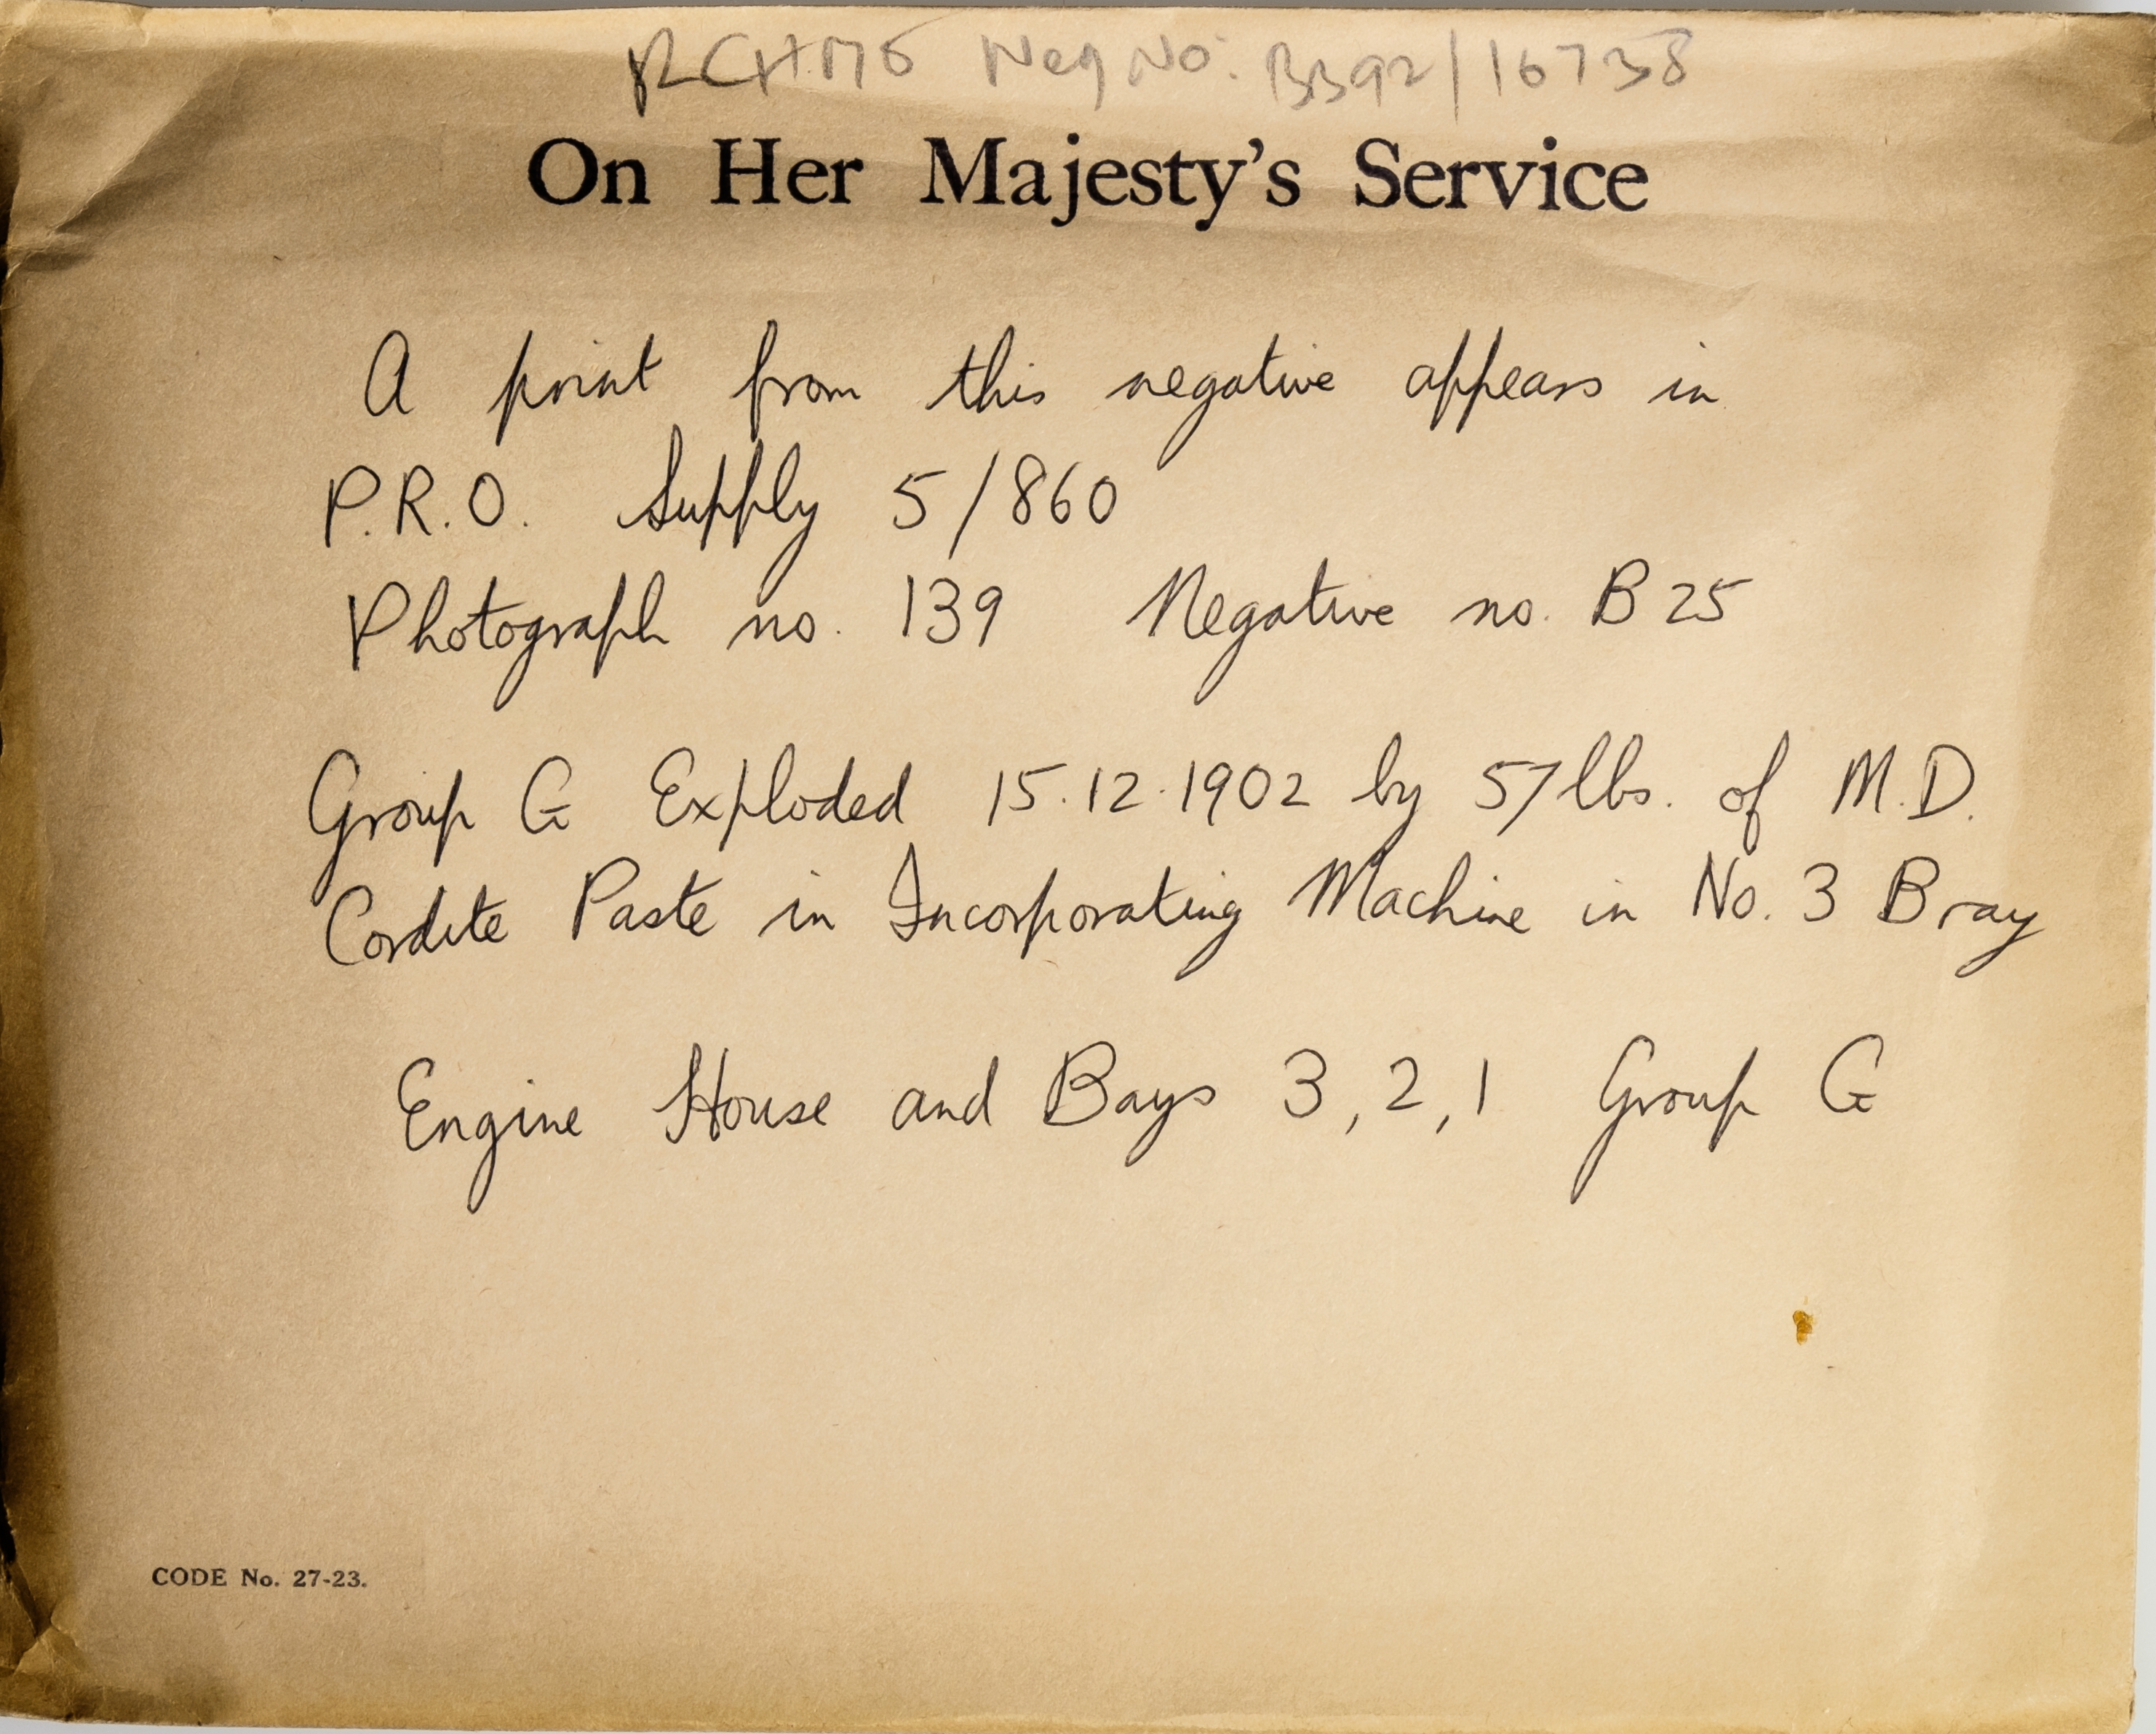 RCHME Neg No: BB92/16738
On Her Majesty's Service
A print from this negative appears in
P.R.O. Supply 5/860
Photograph no. 139 Negative no. B25
Group G Exploded 15.12.1902 by 57lbs. of M.D.
Cordite Paste in Incorporating Machine in No. 3 Bray
Engine House and Bays 3, 2, 1 Group G
CODE No. 27-23.